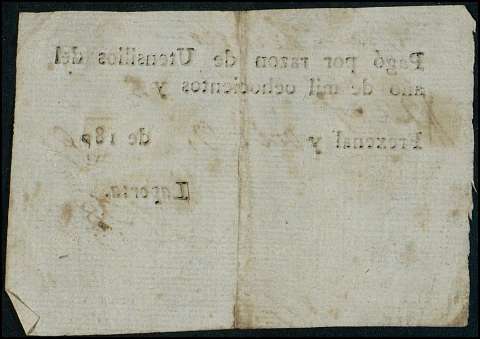 Pagó por razon de Utensilios del
año de mil ochocientos y
Frexenal y de 18
Laperia.